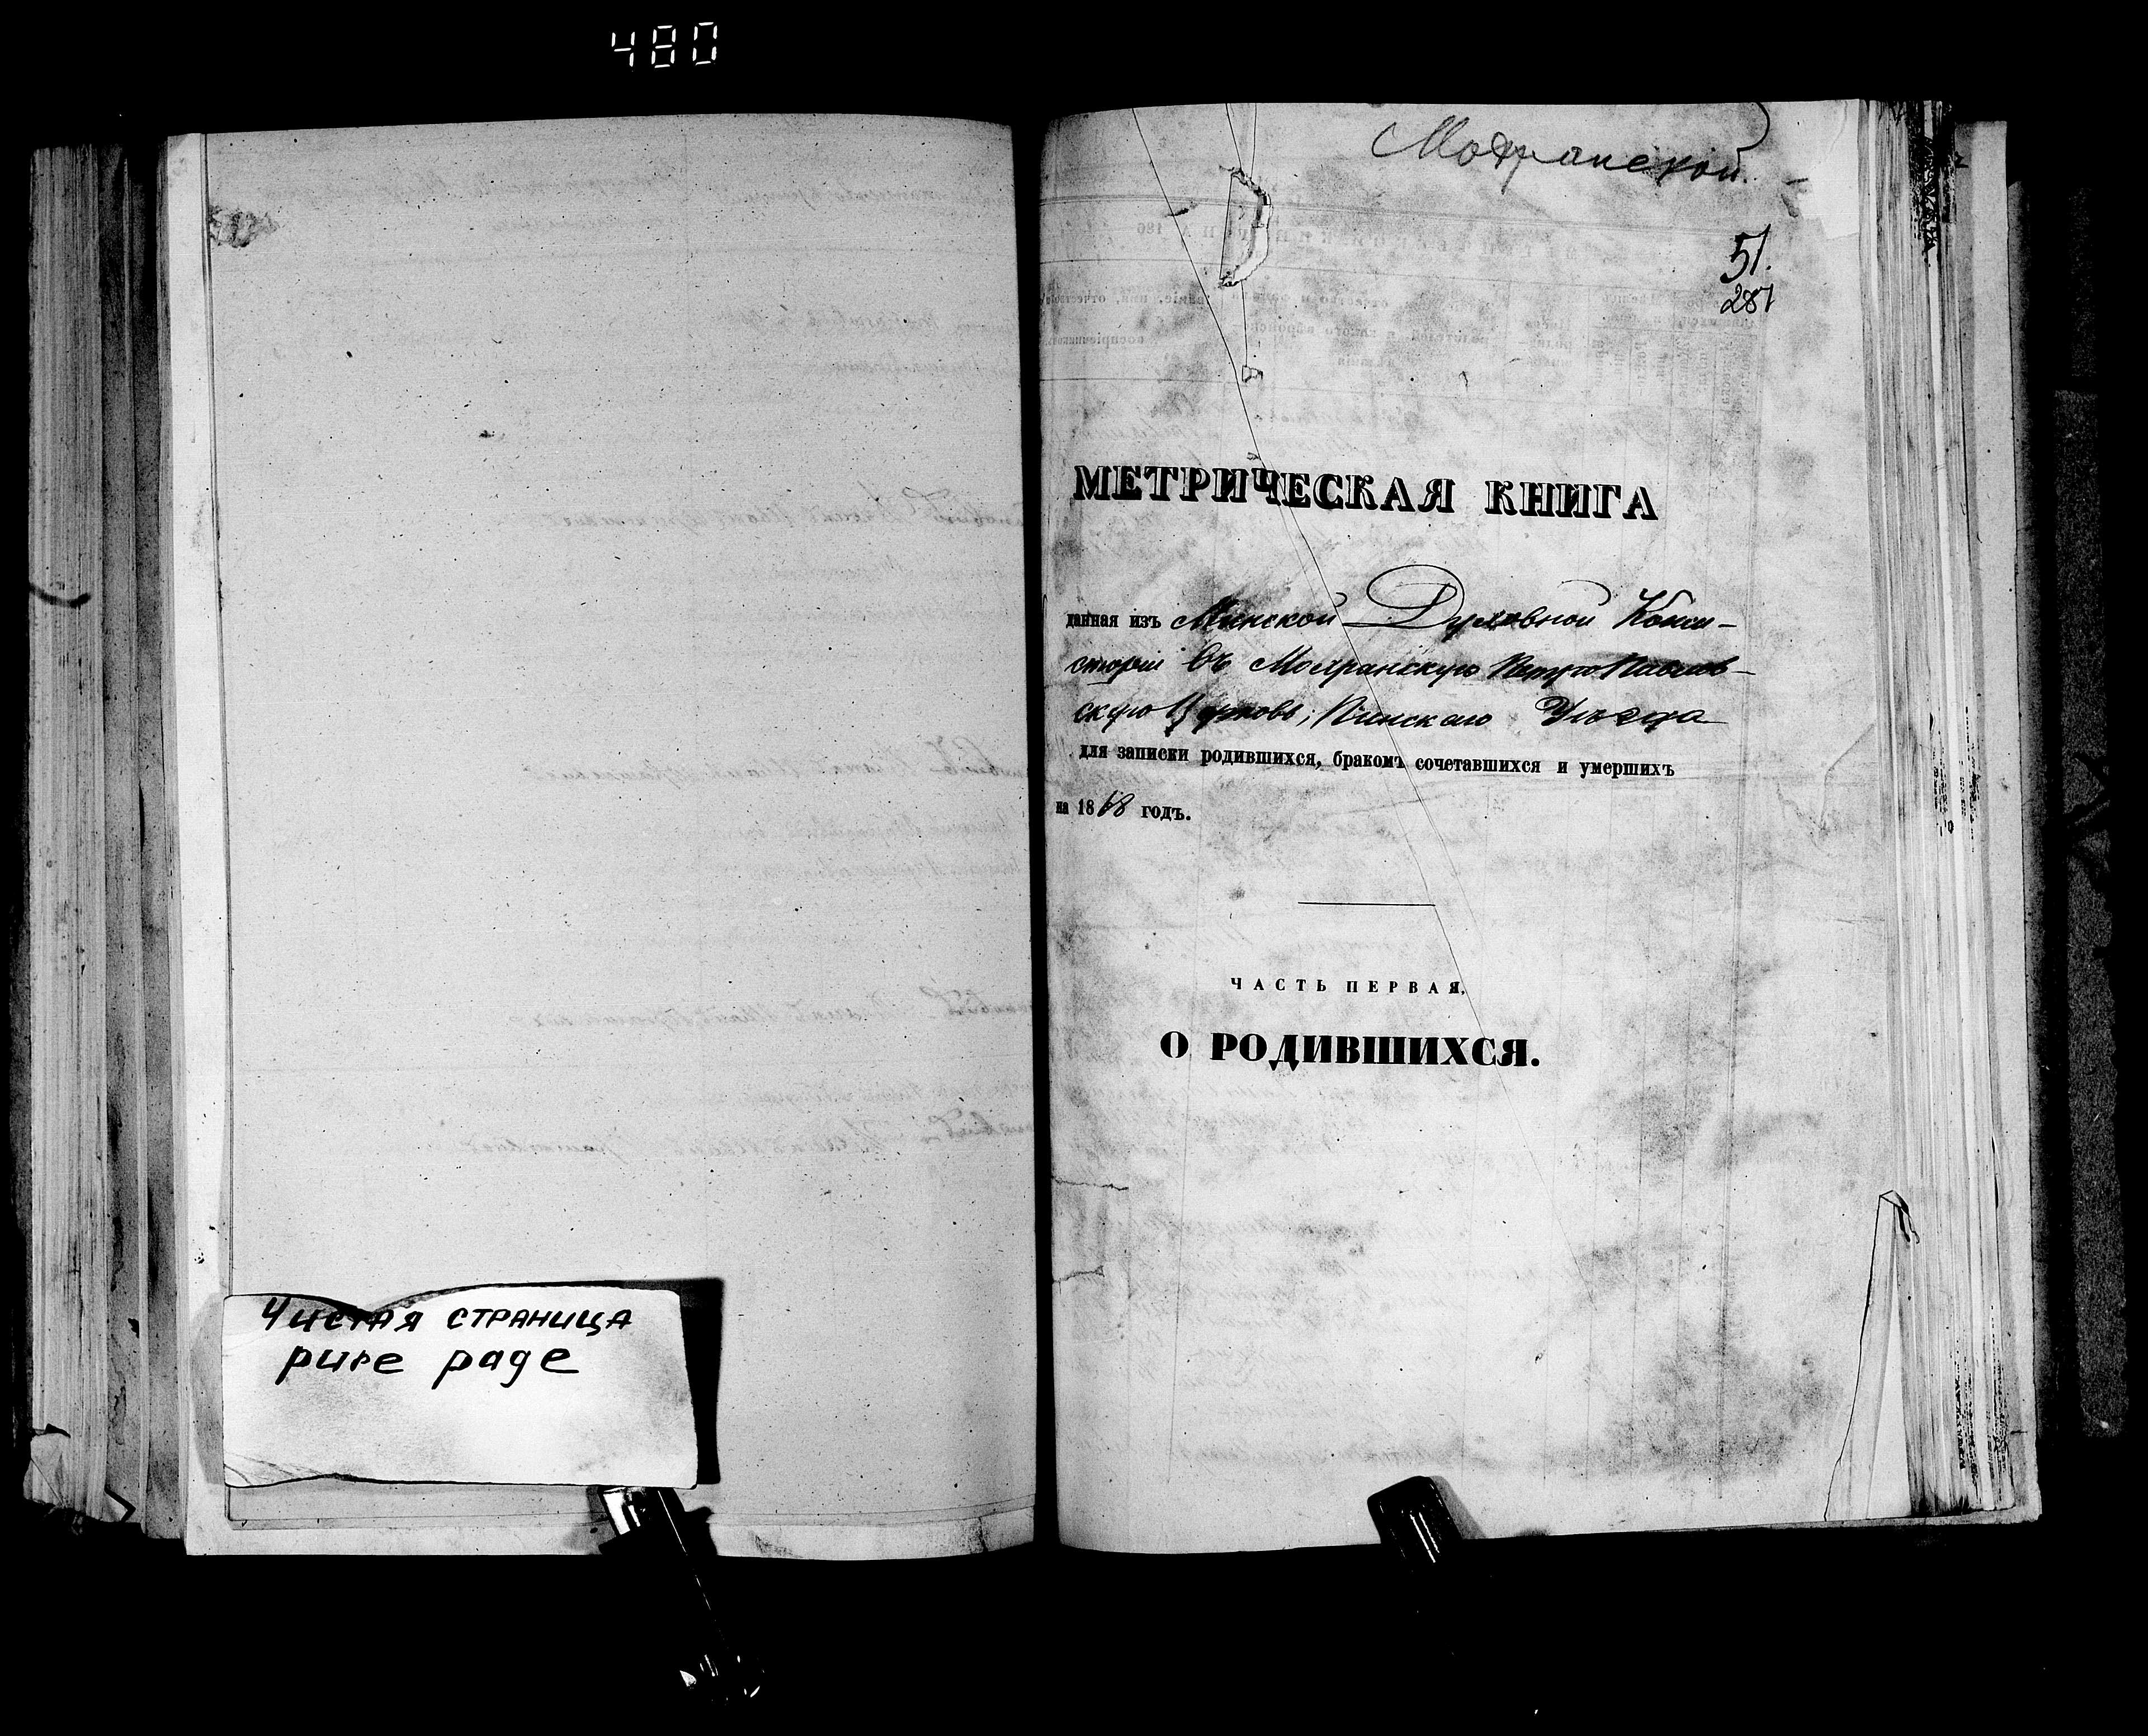 480
Чистая страница
pure page
Мотранской
51.
287
МЕТРИЧЕСКАЯ КНИГА
данная изъ Минской Духовной Конси-
сторіи въ Мотранскую Петро Павлов-
скую Церковь, Пинскаго Уѣзда
для записки родившихся, бракомъ сочетавшихся и умершихъ
на 1868 годъ.
ЧАСТЬ ПЕРВАЯ.
О РОДИВШИХСЯ.